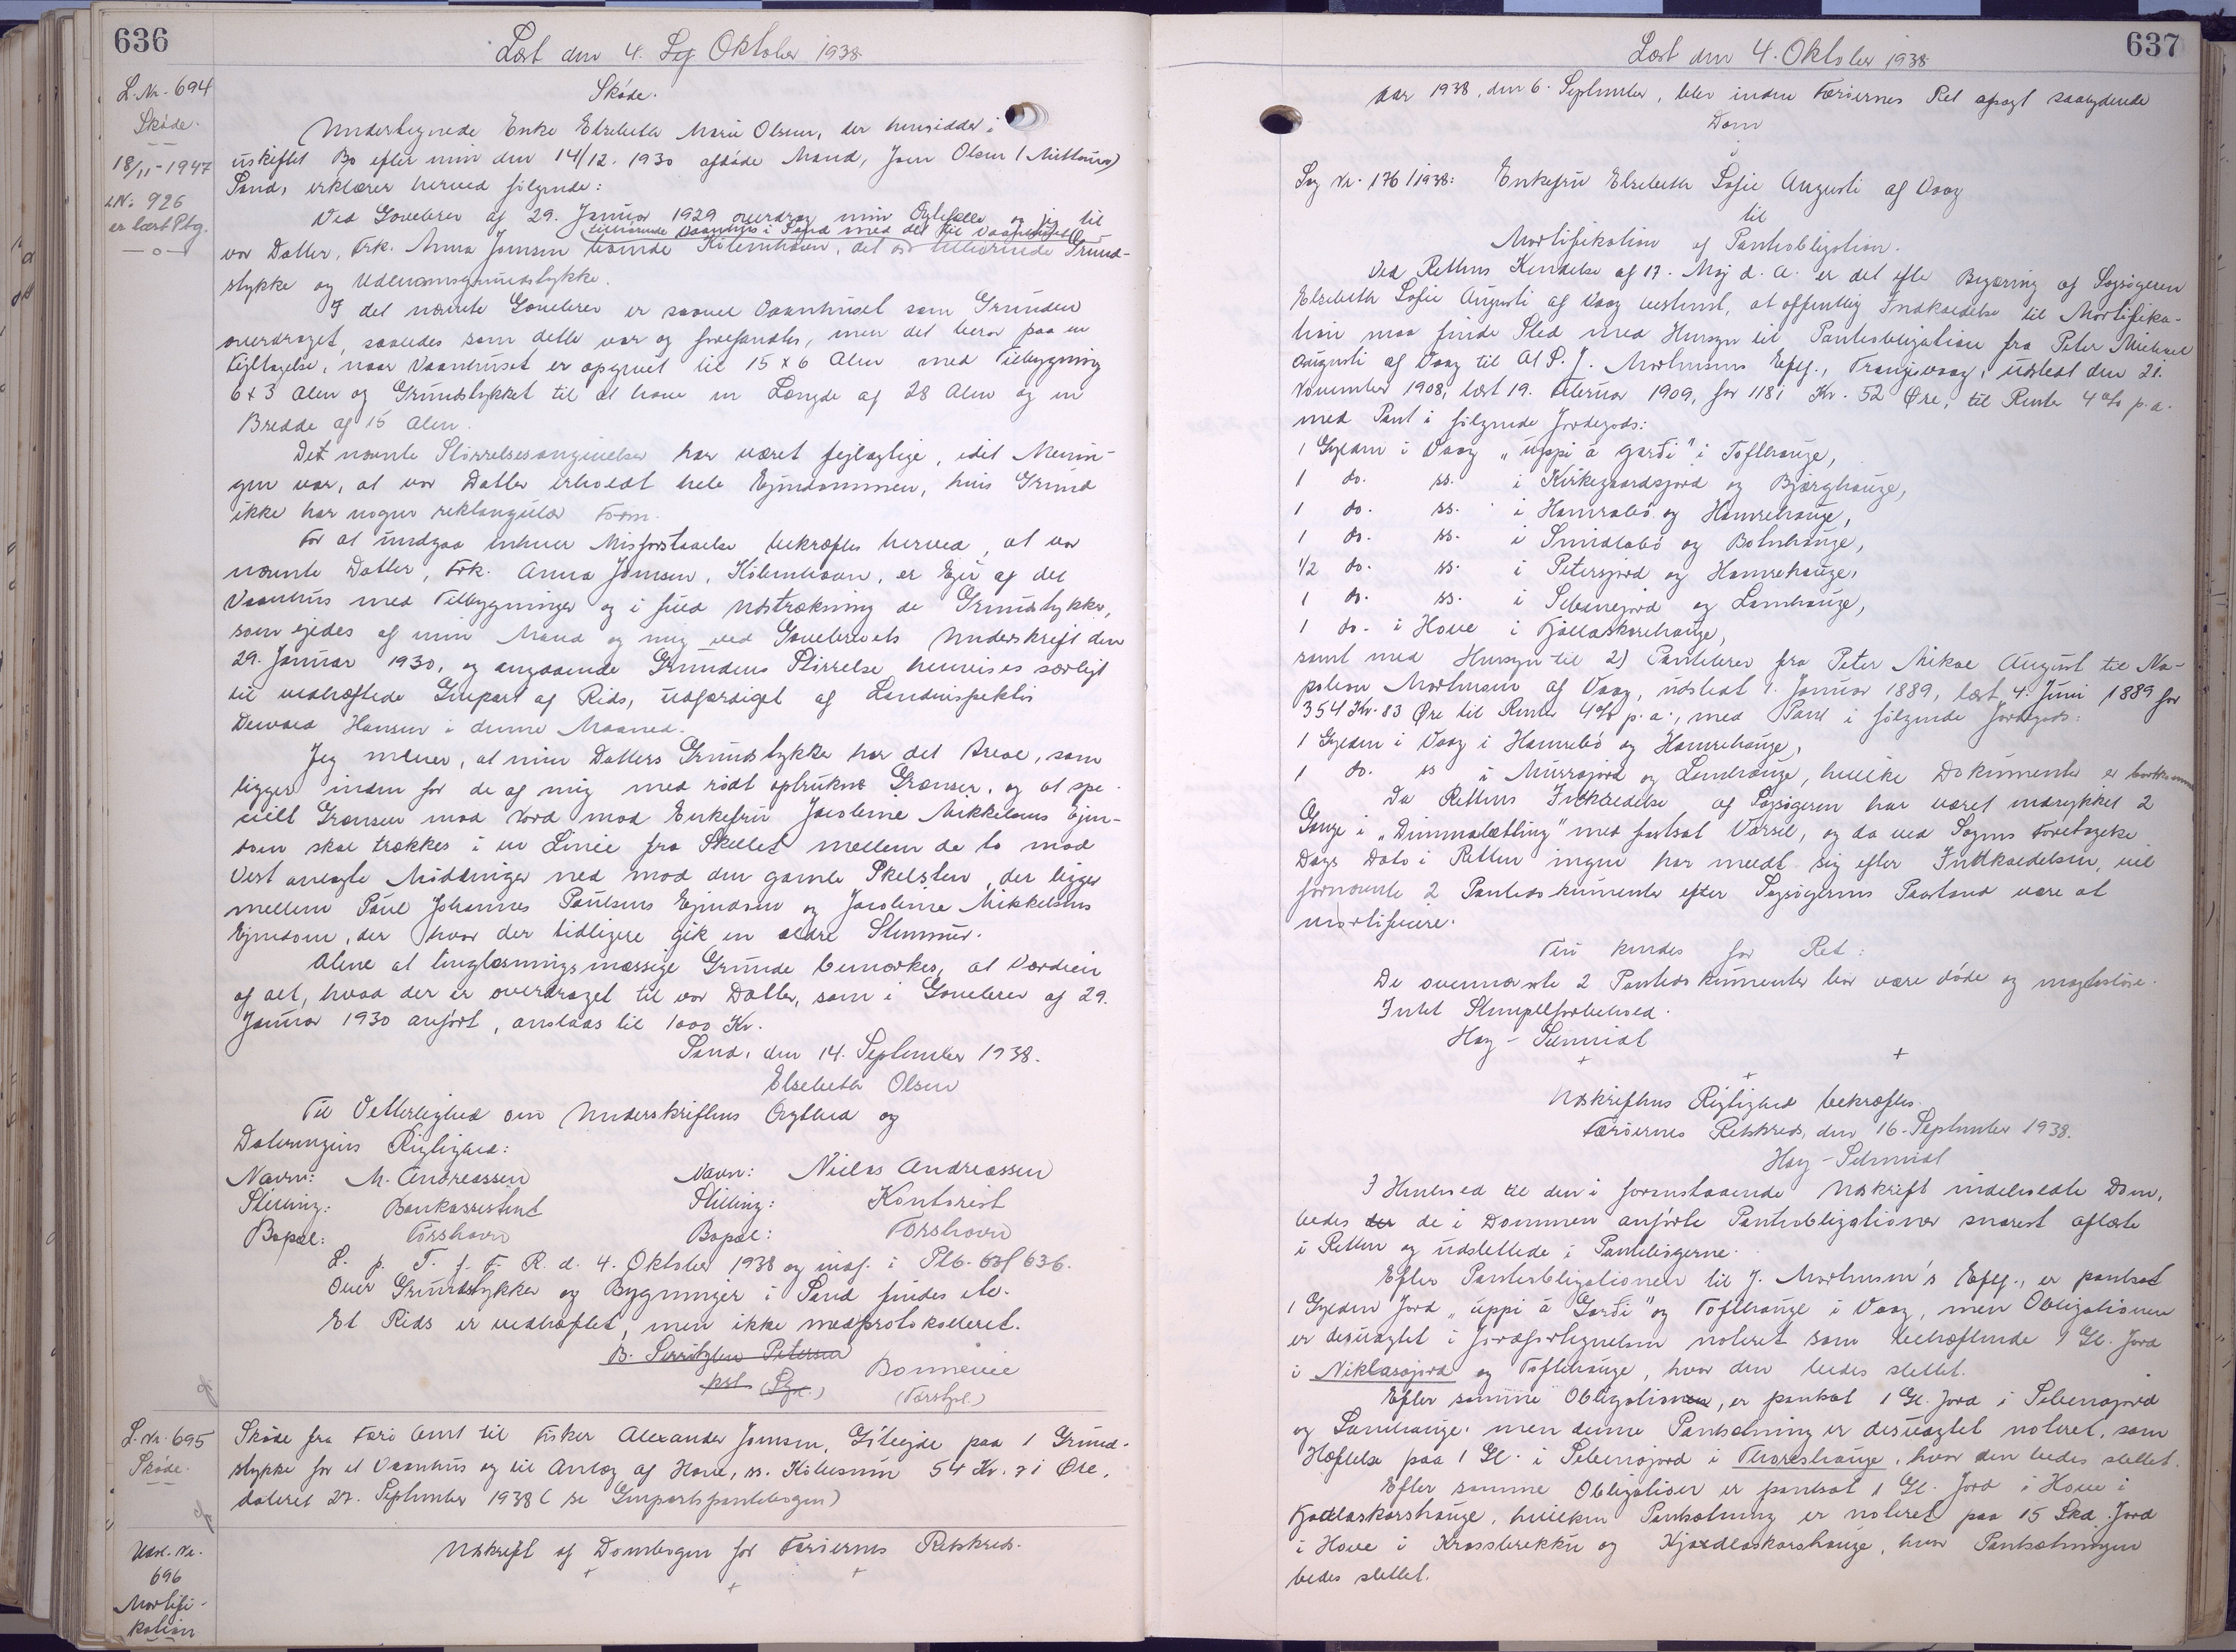 636
Læst den 4. Sep Oktober 1938.
L. Nr. 694
Skøde.
18/11-1947
L.Nr. 926
er læst Ptg.
Skøde.
Undertegnede Enke Elsebeth Marie Olsen, der hensidder i
uskiftet Bo efter min den 14/12. 1930 afdøde Mand, Joen Olsen
Sand, erklærer herved følgende:
Ved Gavebrev af 29. Januar 1929 overdrog min Ægtefælle og jeg til
tilhørende Vaanhus i Sand med det til Vaanhuset
vor Datter, Frk. Anna Joensen København, det os tilhørende Grund-
stykke og Udenomsgrundstykke.
I det nævnte Gavebrev er saavel Vaanhuset som Grunden
overdraget, saaledes som dette var og forefandtes, men det beror paa en
Fejltagelse, naar Vaanhuset er opgivet til 15 x 6 Alen med Tilbygning
6 x 3 Alen og Grundstykket til at have en Længde af 28 Alen og en
Bredde af 15 Alen.
Det nævnte Størrelsesangivelser har været fejlagtige, idet Menin-
gen var, at vor Datter erholdt hele Ejendommen, hvis Grund
ikke har nogen rektangulær Form.
For at undgaa enhver Misforstaaelse bekræftes herved, at vor
nævnte Datter, Frk. Anna Joensen, København, er Ejer af det
Vaanhus med Tilbygninger og i fuld Udstrækning de Grundstykker,
som ejedes af min Mand og mig ved Gavebrevets Underskrift den
29. Januar 1930, og angaaende Grundens Størrelse henvises særligt
til vedhæftede Genpart af Rids, udfærdiget af Landinspektør
Dewald Hansen i denne Maaned.
Jeg mener, at min Datters Grundstykke har det Areal, som
ligger inden for de af mig med rødt optrukne Grænser, og at spe-
cielt Grænsen mod Nord mod Enkefru Jacobine Mikkelsens Ejen-
dom skal trækkes i en Linie fra Skellet mellem de to mod
Vest anlagte Møddinger ned mod den gamle Skelsten, der ligger
mellem Poul Johannes Poulsens Ejendom og Jacobine Mikkelsens
Ejendom, der hvor der tidligere gik en ældre Stenmur.
Alene af tinglæsningsmæssige Grunde bemærkes, at Værdien
af alt, hvad der er overdraget til vor Datter, som i Gavebrev af 29.
Januar 1930 anført, anslaas til 1000 Kr.
Sand, den 14. September 1938.
Elsebeth Olsen
Til Vitterlighed om Underskriftens Ægthed og
Dateringens Rigtighed:
Navn: M. Andreassen Navn: Niclas Andreassen
Stilling: Bankassistent Stilling: Kontorist
Bopæl: Tórshavn Bopæl: Tórshavn
L. p. T. f. F. R. d. 4. Oktober 1938 og indf. i Ptb. 636.
Over Grundstykker og Bygninger i Sand findes etc.
Et Rids er vedhæftet, men ikke medprotokolleret.
B. Serritzlew Petersen
pst (Fg.) Bonnevie
(Forsbef.)
L. Nr. 695
Skøde.
Skøde fra Færø Amt til Fisker Alexander Joensen, Gøtegjde paa 1 Grund-
stykke for et Vaanhus og til Anlæg af Have, ss. Købesum 54 Kr. 71 Øre,
dateret 27. September 1938 (se Genpartspantebogen)
Udsl. Nr.
696
Mortifi-
kation
Udskrift af Dombogen for Færøernes Retskreds.
637
Læst den 4. Oktober 1938
Aar 1938, den 6. September, blev inden Færøernes Ret afsagt saalydende
Dom
i
Sag Nr. 176/1938: Enkefru Elsebeth Sofie Augusti af Vaag
til
Mortifikation af Panteobligation.
Ved Rettens Kendelse af 17. Maj d. A. er det efter Begæring af Sagsøgeren
Elsebeth Sofie Augusti af Vaag bestemt, at offentlig Indkaldelse til Mortifika-
tion maa finde Sted med Hensyn til Panteobligation fra Peter Michael
Augusti af Vaag til A/S. J. Mortensens Eftf., Trangisvaag, udstedt den 21.
November 1908, læst 19. Februar 1909, for 1181 Kr. 52 Øre, til Rente 4 % p.a.
med Pant i følgende Jordegods:
1 Gylden i Vaag "uppi á garði" i Tofthauge,
1 do. ss. i Kirkegaardsjord og Bjærghauge,
1 do. ss. i Hamrabø og Hamrehauge,
1 do. ss. i Smidlabø og Botnhauge,
1/2 do. ss. i Petersjord og Hamrehauge,
1 do. ss. i Sibanejord og Lamhauge,
1 do. i Hove i Fjallaskorehauge,
samt med Hensyn til 2) Pantebrev fra Peter Mikael August til Na-
poleon Mortensen af Vaag, udstedt 1. Januar 1889, læst 4. Juni 1889 for
354 Kr. 83 Øre til Rente 4 % p.a., med Pant i følgende Jordegods:
1 Gylden i Vaag i Hamrebø og Hamrehauge,
1 do. ss i Murrajord og Lamhauge, hvilke Dokumenter er bortkomne
Da Rettens Indkaldelse af Sagsøgeren har været indrykket 2
Gange i "Dimmalætting" med fastsat Varsel, og da ved Sagens Foretagelse
Dags Dato i Retten ingen har meldt sig efter Indkaldelsen, vil
førnævnte 2 Pantedokumenter efter Sagsøgerens Paastand være at
mortificere.
Thi kendes for Ret:
De ovennævnte 2 Pantedokumenter bør være døde og magtesløse.
Intet Stempelforbehold.
Hay-Schmidt
Udskriftens Rigtighed bekræftes.
Færøernes Retskreds, den 16. September 1938.
Hay-Schmidt
I Henhold til den i foranstaaende Udskrift indeholdte Dom,
bedes der de i Dommen anførte Panteobligationer snarest aflæste
i Retten og udslettede i Pantebøgerne.
Efter Panteobligationen til J. Mortensen's Eftf., er pantsat
1 Gylden Jord "uppi á Garði" og Tofthauge i Vaag, men Obligationen
er desuagtet i Jordfortegnelsen noteret som behæftende 1 Gl. Jord
i Niklasajord og Tofthauge, hvor den bedes slettet.
Efter samme Obligation, er pantsat 1 Gl. Jord i Sibenajord
og Lamhauge, men denne Pantsætning er desuagtet noteret, som
Hæftelse paa 1 Gl. i Sibenajord i Thoreshauge, hvor den bedes slettet.
Efter samme Obligation er pantsat 1 Gl. Jord i Hove i
Fjadlaskorshauge, hvilken Pantsætning er noteret paa 15 Skd. Jord
i Hove i Krossbrekku og Kjardlaskorshauge, hvor Pantsætningen
bedes slettet.